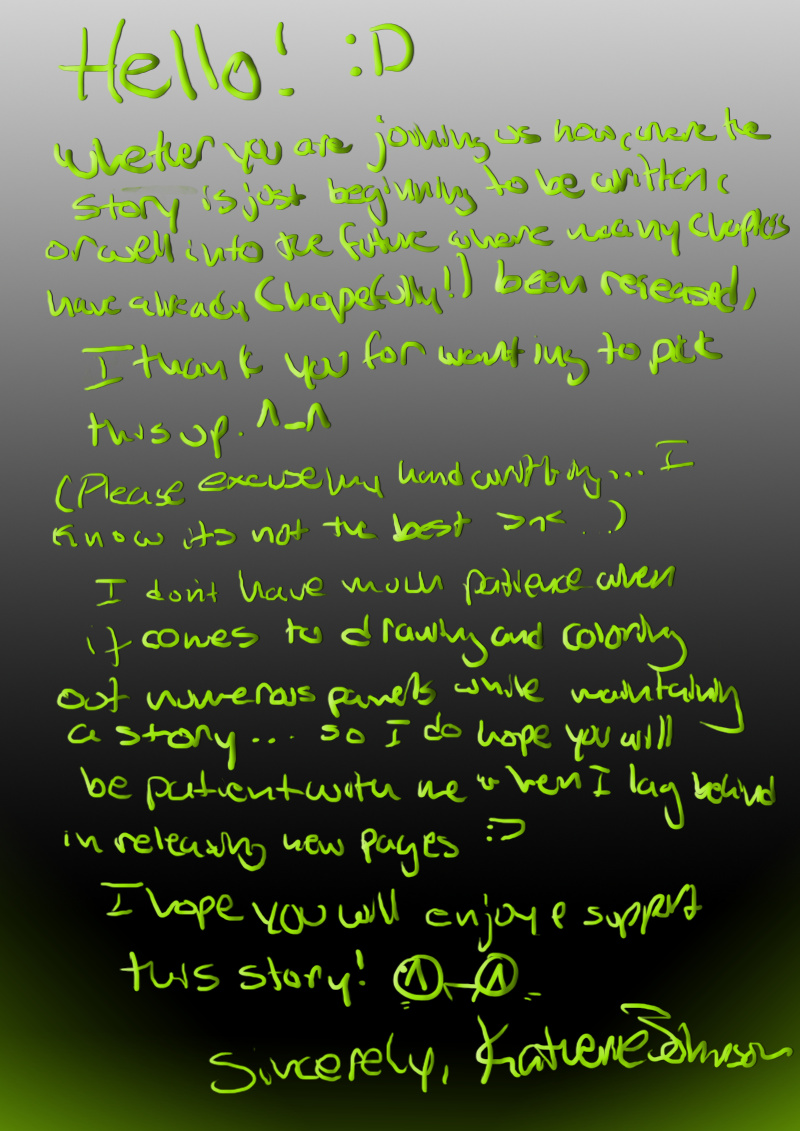 Hello! :D
Whether you are joining us now, where the
story is just beginning to be written,
or well into the future where many chapters
have already (hopefully!) been released,
I thank you for wanting to pick
this up. ^_^
(Please excuse my handwriting... I
know its not the best >n< ..)
I don't have much patience when
it comes to drawing and coloring
out numerous panels while maintaining
a story... so I do hope you will
be patient with me when I lag behind
in releasing new pages :D
I hope you will enjoy & support
this story!
Sincerely, Katherine Johnson